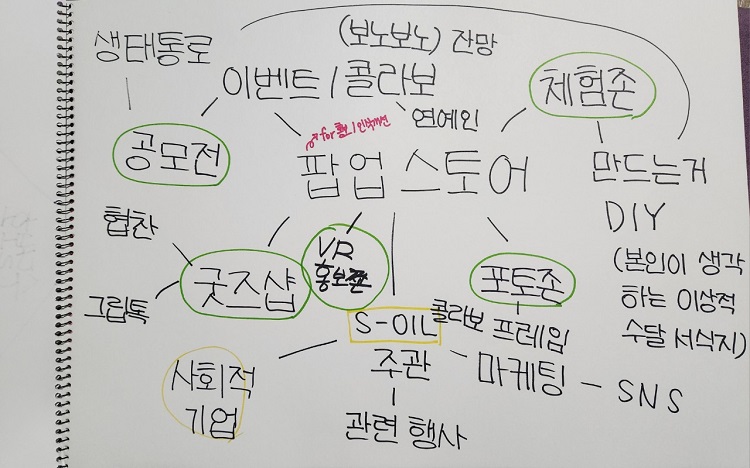 생태통로
(보노보노) 잔망
이벤트 / 콜라보
체험존
연예인
공모전
for 홍보 / 인식개선
팝업 스토어
만드는거
DIY
(본인이 생각
하는 이상적
수달 서식지)
협찬
굿즈샵
그립톡
VR
홍보존
포토존
콜라보 프레임
S-OIL
주관
관련 행사
사회적
기업
마케팅 - SNS